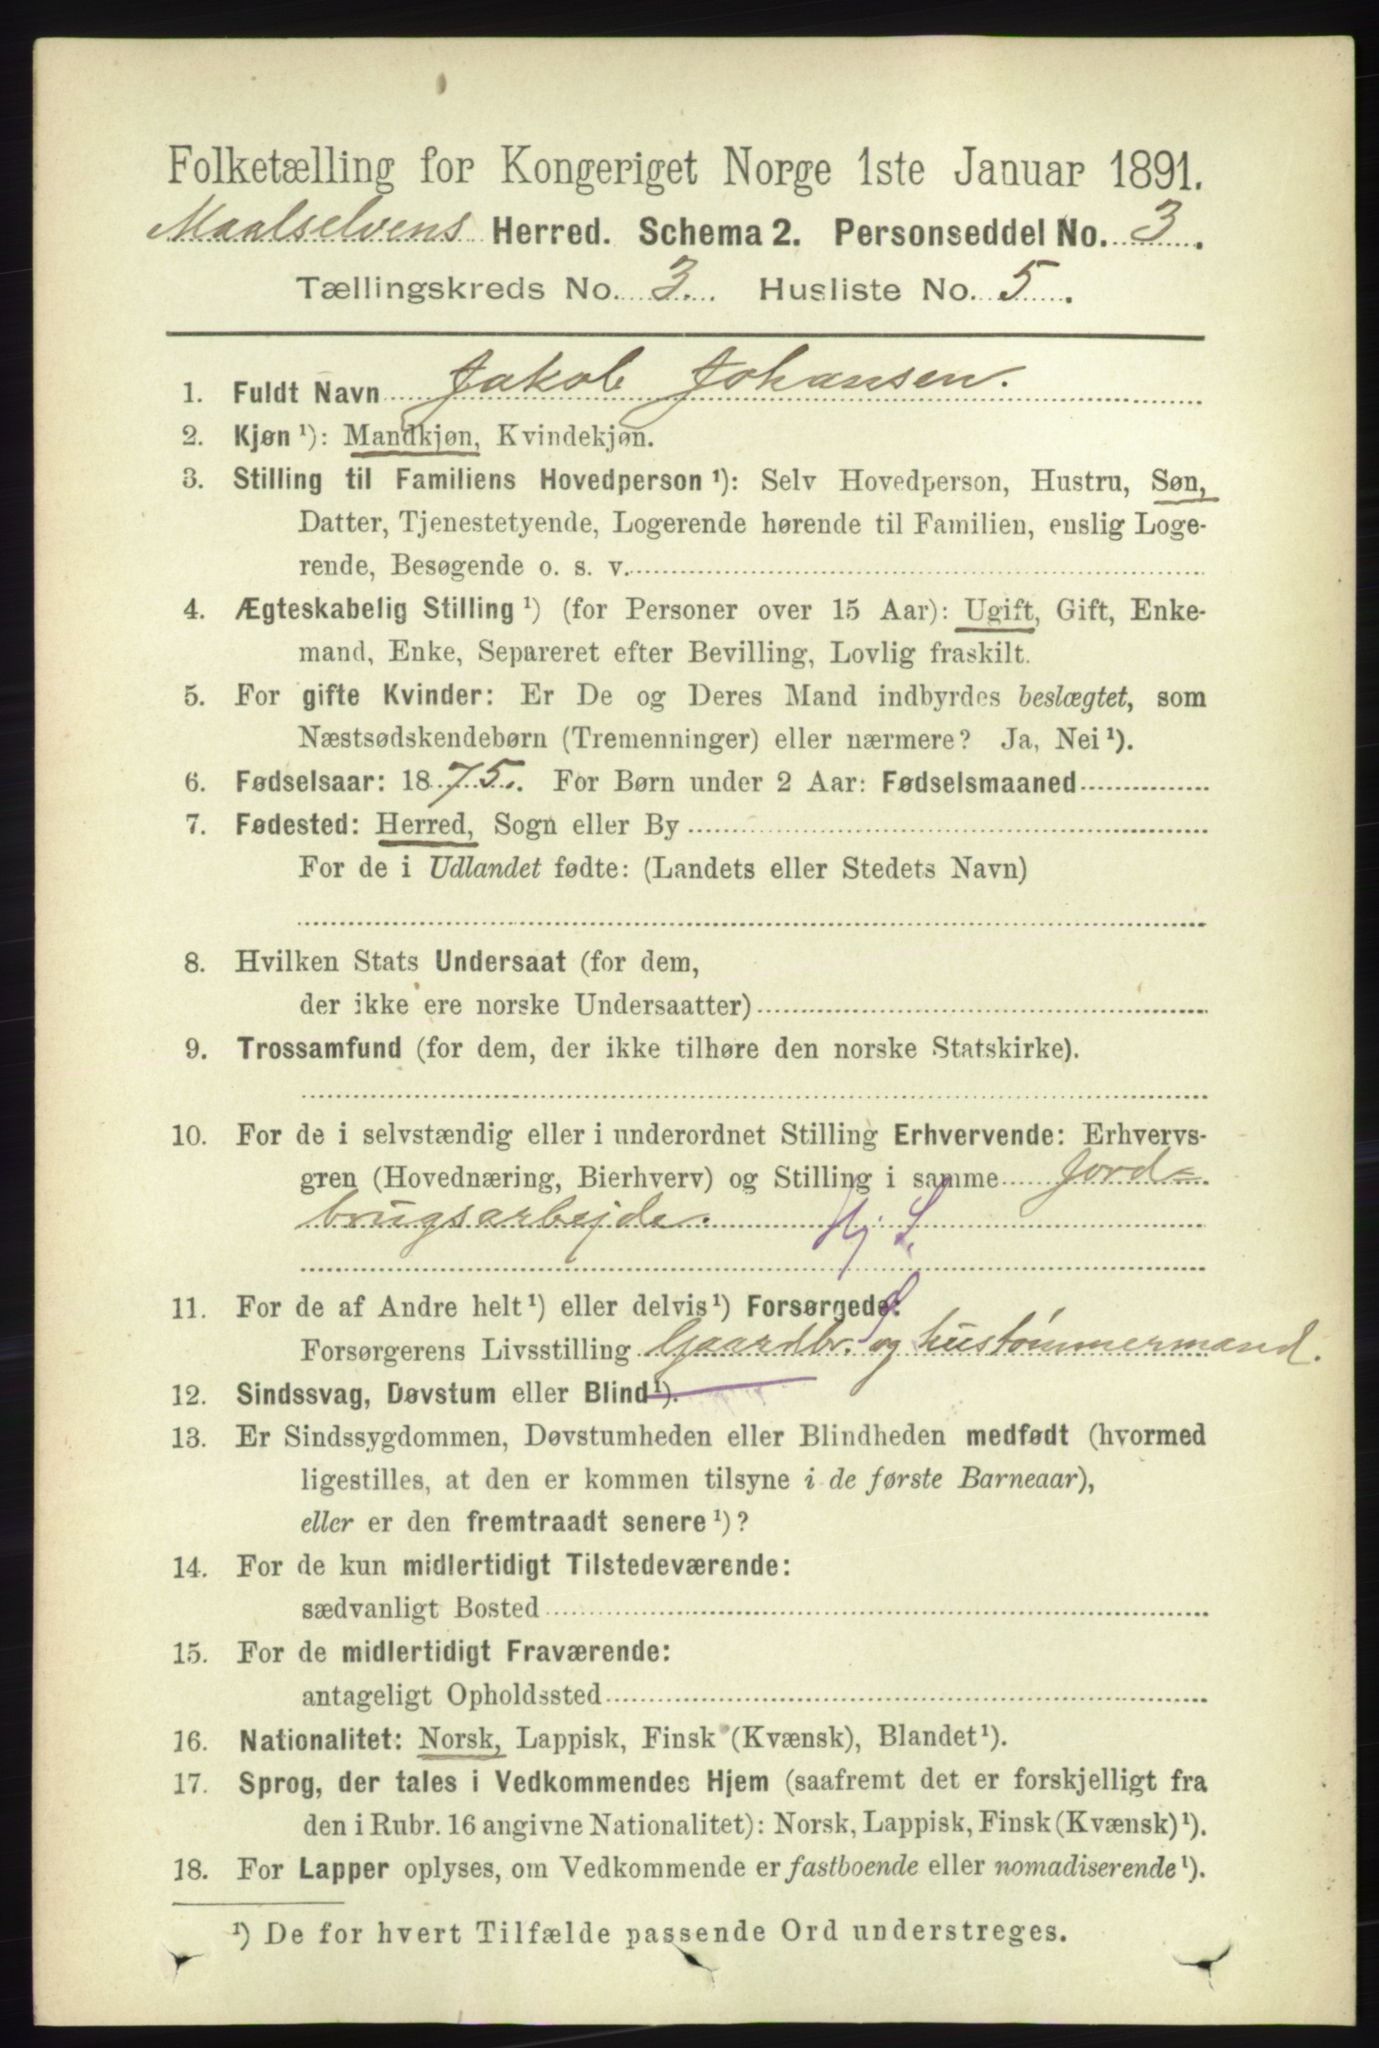 Folketælling for Kongeriget Norge 1ste Januar 1891.
Maalselvens Herred. Schema 2. Personseddel No. 3.
Tællingskreds No. 3. Husliste No. 5.
1. Fuldt Navn Jakob Johansen.
2. Kjøn ¹): Mandkjøn, Kvindekjøn.
3. Stilling til Familiens Hovedperson ¹): Selv Hovedperson, Hustru, Søn,
Datter, Tjenestetyende, Logerende hørende til Familien, enslig Loge-
rende, Besøgende o. s. v.
4. Ægteskabelig Stilling ¹) (for Personer over 15 Aar): Ugift, Gift, Enke-
mand, Enke, Separeret efter Bevilling, Lovlig fraskilt.
5. For gifte Kvinder: Er De og Deres Mand indbyrdes beslægtet, som
Næstsødskendebørn (Tremenninger) eller nærmere? Ja, Nei ¹).
6. Fødselsaar: 1875. For Børn under 2 Aar: Fødselsmaaned
7. Fødested: Herred, Sogn eller By
For de i Udlandet fødte: (Landets eller Stedets Navn)
8. Hvilken Stats Undersaat (for dem,
der ikke ere norske Undersaatter)
9. Trossamfund (for dem, der ikke tilhøre den norske Statskirke).
10. For de i selvstændig eller i underordnet Stilling Erhvervende: Erhvervs-
gren (Hovednæring, Bierhverv) og Stilling i samme Jord=
brugsarbejde. Hj. S.
11. For de af Andre helt ¹) eller delvis ¹) Forsørgede:
Forsørgerens Livsstilling Gaardbr. og hustømmermand.
12. Sindssvag, Døvstum eller Blind ¹).
13. Er Sindssygdommen, Døvstumheden eller Blindheden medfødt (hvormed
ligestilles, at den er kommen tilsyne i de første Barneaar),
eller er den fremtraadt senere ¹)?
14. For de kun midlertidigt Tilstedeværende:
sædvanligt Bosted
15. For de midlertidigt Fraværende:
antageligt Opholdssted
16. Nationalitet: Norsk, Lappisk, Finsk (Kvænsk), Blandet ¹).
17. Sprog, der tales i Vedkommendes Hjem (saafremt det er forskjelligt fra
den i Rubr. 16 angivne Nationalitet): Norsk, Lappisk, Finsk (Kvænsk) ¹).
18. For Lapper oplyses, om Vedkommende er fastboende eller nomadiserende ¹).
¹) De for hvert Tilfælde passende Ord understreges.